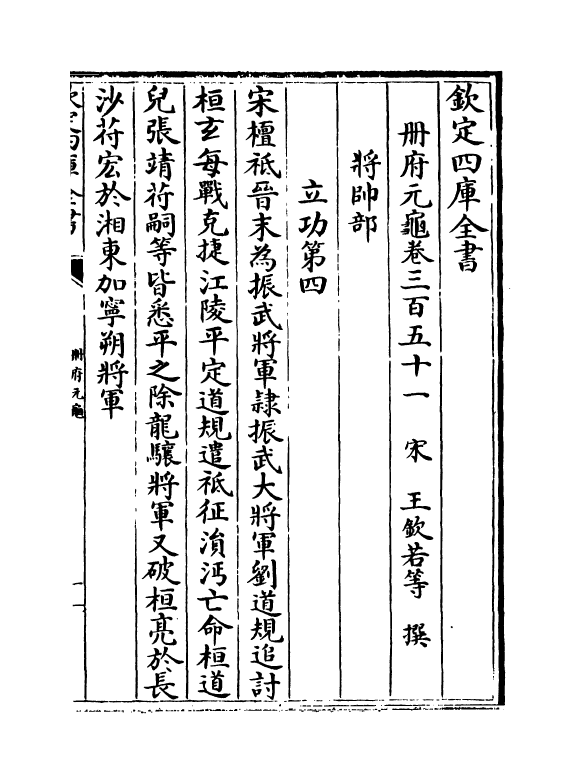 欽定四庫全書
冊府元龜卷三百五十一　宋　王欽若等　撰
將帥部
立功第四
宋檀祗晉末為振武將軍隸振武大將軍劉道規追討
桓玄每戰克捷江陵平定道規遣祗征溳沔亡命桓道
兒張靖苻嗣等皆悉平之除龍驤將軍又破桓亮於長
沙苻宏於湘東加寧朔將軍
欽定四庫全書
冊府元龜